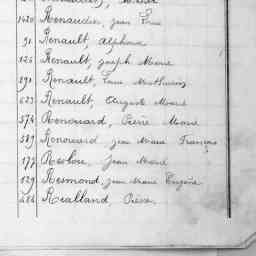 1420 Renaudier, Jean
91 Renault, Alphonse
126 Renault, Joseph Marie
291 Renault, Louis Mathurin
623 Renault, Auguste Marie
574 Renouard, Pierre Marie
589 Renouard, Jean Marie François
177 Jean Marie
129 Resmond, Jean Marie Eugène
484 Realland Pierre